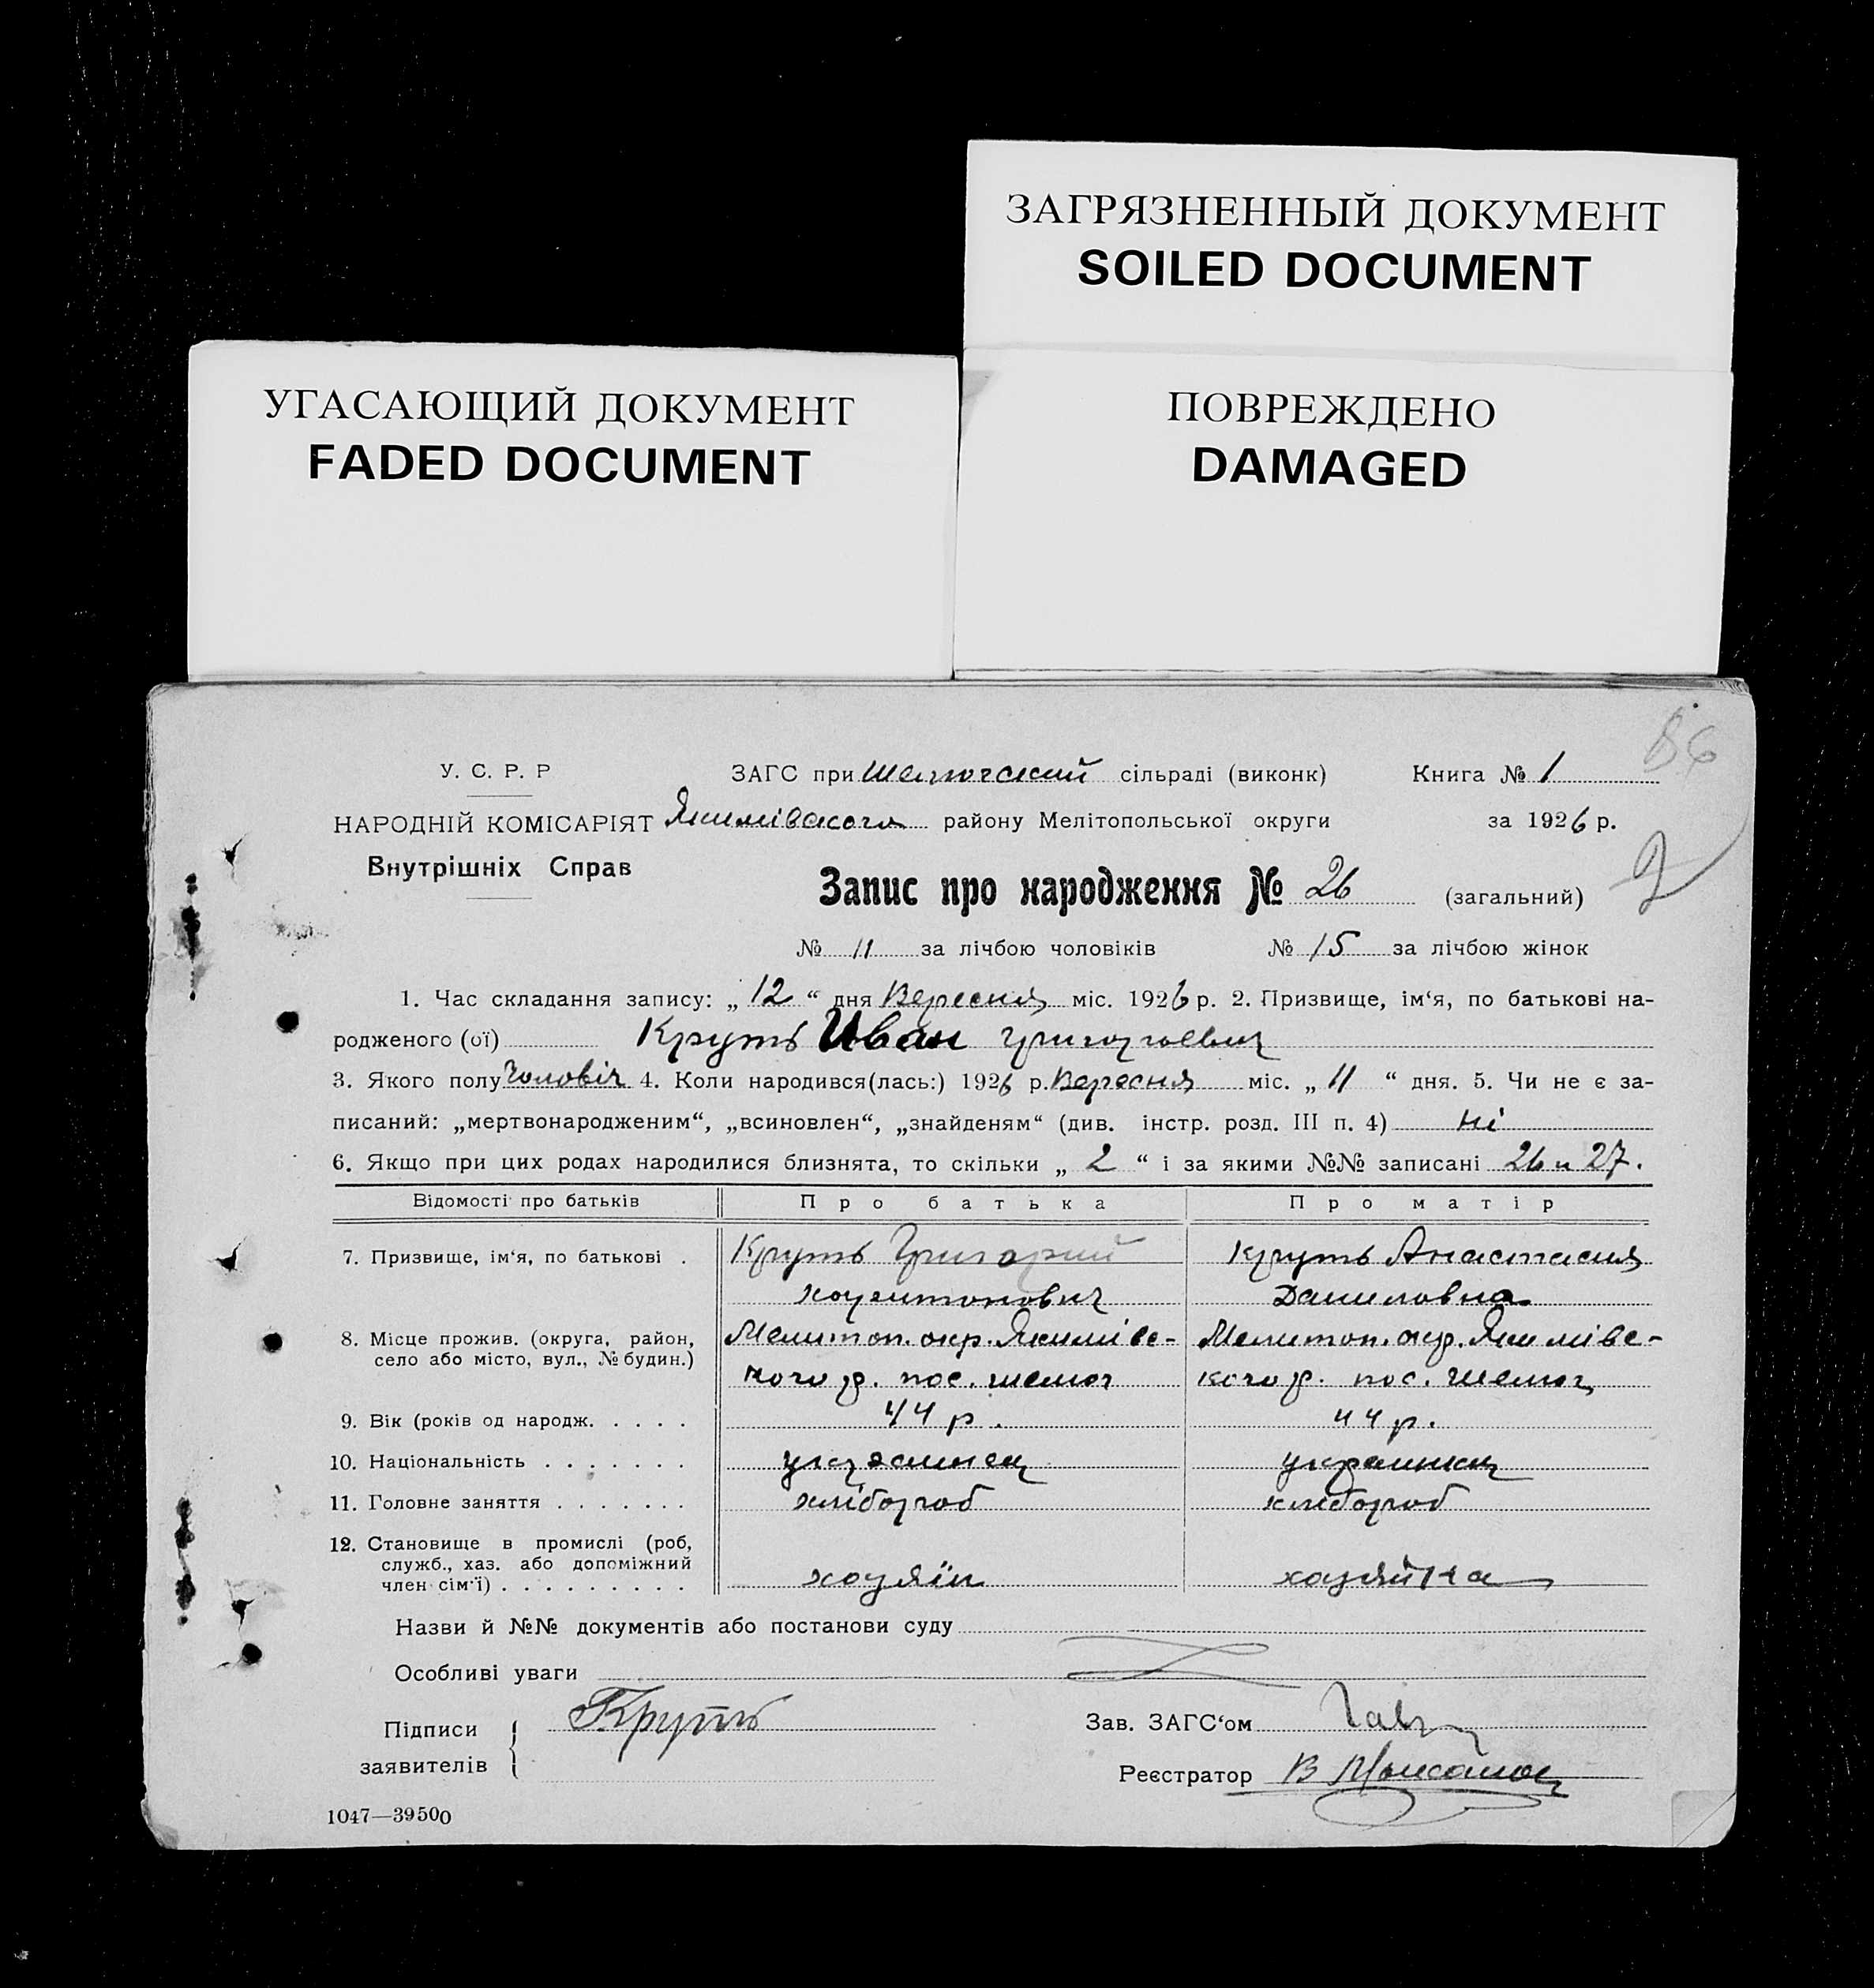 ЗАГРЯЗНЕННЫЙ ДОКУМЕНТ
SOILED DOCUMENT
УГАСАЮЩИЙ ДОКУМЕНТ
FADED DOCUMENT
ПОВРЕЖДЕНО
DAMAGED
86
У. С. Р. Р
ЗАГС при сільраді (виконк) Книга № 1
НАРОДНІЙ КОМІСАРІЯТ Якимівского району Мелітопольської округи за 1926 р.
Внутрішніх Справ
2
Запис про народження № 26 (загальний)
№ 11 за лічбою чоловіків № 15 за лічбою жінок
1. Час складання запису: „ 12 “ дня Вересня міс. 1926 р. 2. Призвище, ім‘я, по батькові на-
родженого (ої) Круть Иван Григорьевич
3. Якого полу Чоловіч 4. Коли народився(лась:) 1926 р. Вересня міс. „ 11 “ дня. 5. Чи не є за-
писаний: „мертвонародженим“, „всиновлен“, „знайденям“ (див. інстр. розд. III п. 4) ні
6. Якщо при цих родах народилися близнята, то скільки „ 2 “ і за якими №№ записані 26 и 27.
Відомості про батьків Про батька Про матір
7. Призвище, ім‘я, по батькові . Круть Григорий Круть Анастасия
Харитонович Даниловна
8. Місце прожив. (округа, район, Мелитоп. окр. Якимівс- Мелитоп. окр. Якимівс-
село або місто, вул., № будин.)
кого р. пос. кого р. пос.
9. Вік (років од народж. . . . . 44 р. 44 р.
10. Національність . . . . . . . українец українка
11. Головне заняття . . . . . . . хлібороб хлібороб
12. Становище в промислі (роб,
служб., хаз. або допоміжний
член сім‘ї) . . . . . . . . . хозяїн хазяйка
Назви й №№ документів або постанови суду
Особливі уваги
Підписи Круть Зав. ЗАГС‘ом
заявителів
Реєстратор В
1047—39500